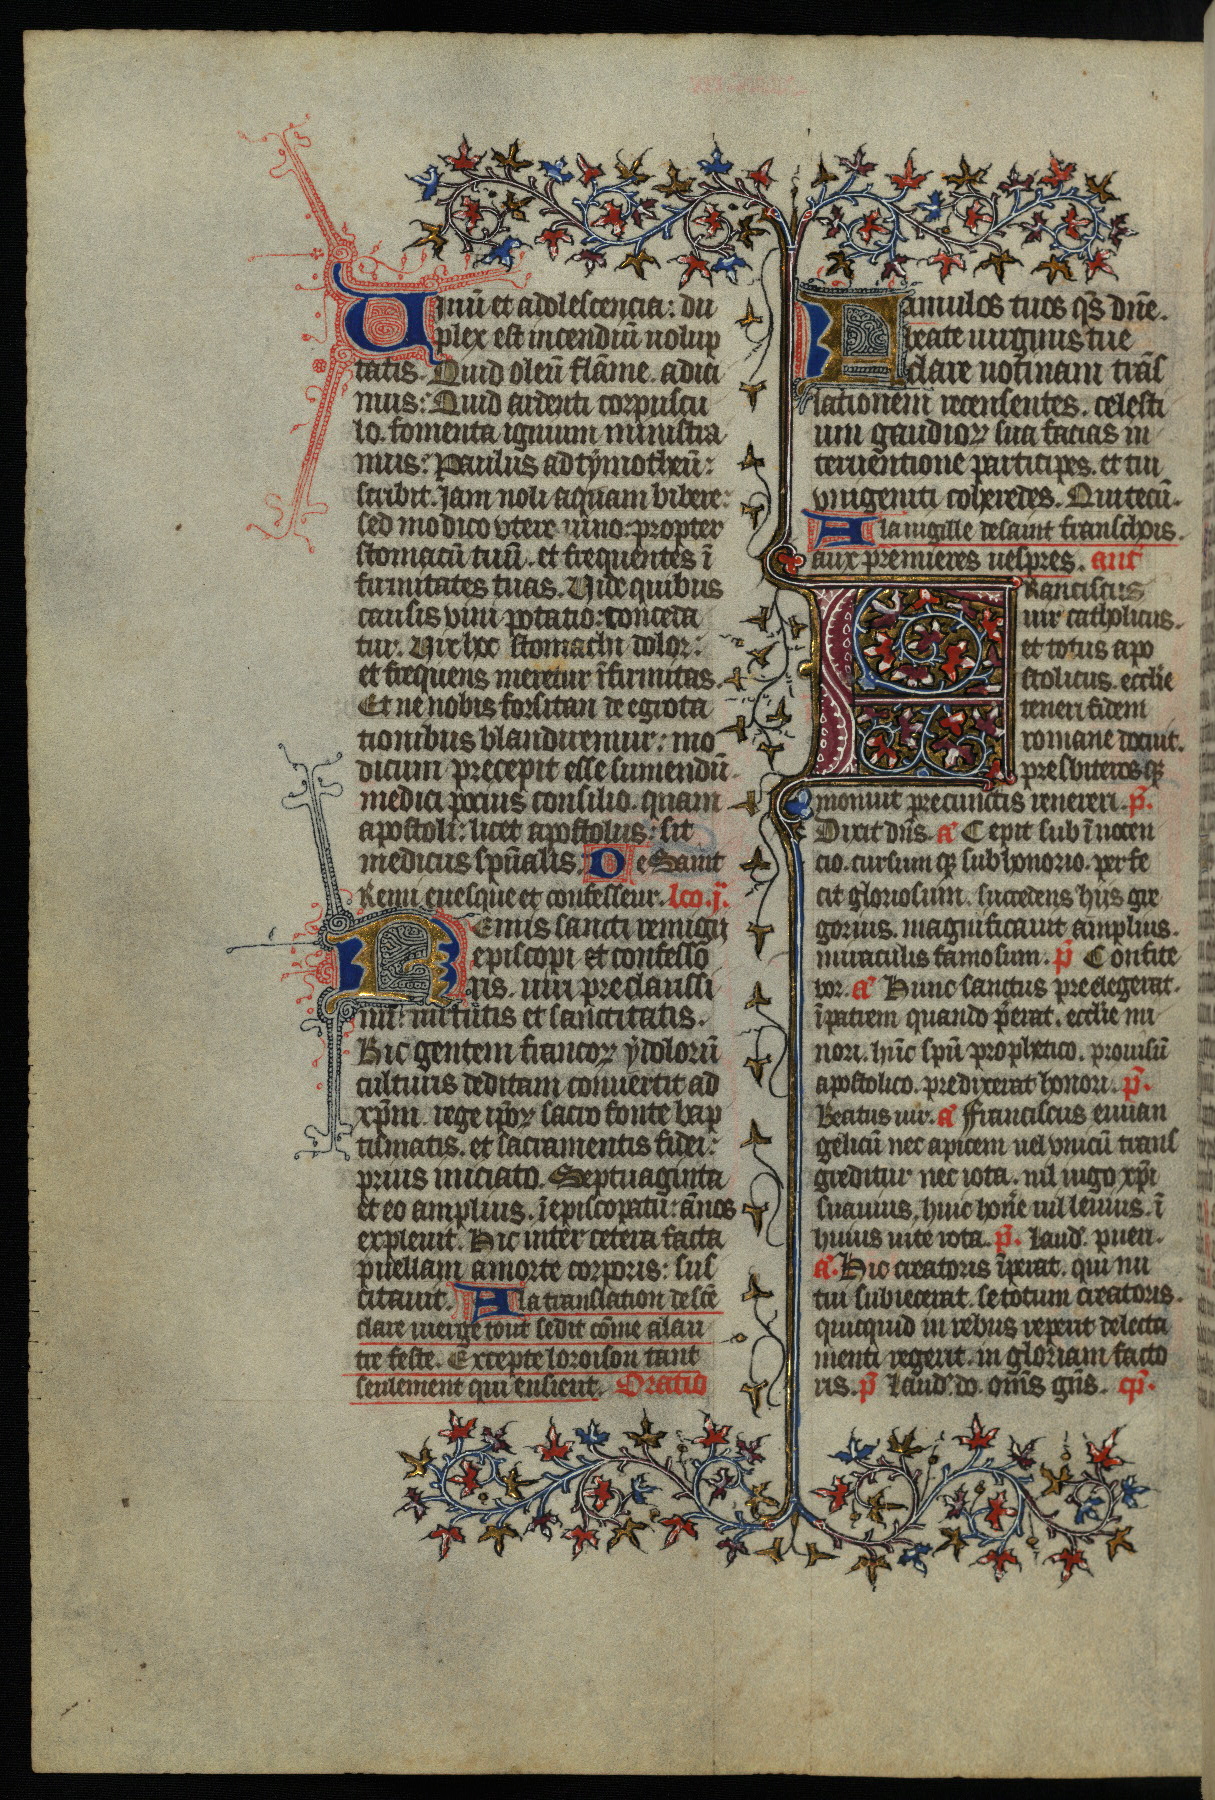 Vinū et adolescencia: du
plex est incendiū uolup
tatis. Quid oleū flāme adici
mus: Quid ardenti corpuscu
lo. fomenta ignium ministra
mus: Paulus ad tymotheū:
scribit. Jam noli aquam bibere:
sed modico vtere uino: propter
stomacū tuū. et frequentes ī
firmitates tuas. Vide quibus
causis vini potatio: conceda
tur. Vix hoc stomachi dolor:
et frequens meretur īfirmitas.
Et ne nobis forsitan de egrota
tionibus blandiremur: mo
dicum precepit esse sumendū.
medici pocius consilio. quam
apostoli: licet apostolus: sit
medicus spūalis. De Saint
Remi euesque et confesseur. lco. j.
Remis sancti remigii
episcopi et confesso
ris. uiri preclarissi
mi: uirtutis et sanctitatis.
Hic gentem francoꝝ ydolorū
culturis deditam conuertit ad
xp̄m. rege ip̄oꝝ sacro fonte bap
tismatis. et sacramentis fidei:
prius iniciato. Septuaginta
et eo amplius. īepiscopatū: ānos
expleuit. Hic inter cetera facta
puellam amorte corporis: sus
citauit. A la translation de scē
clare uierge tout sedit cōme alau
tre feste. Excepte loroison tant
seulement qui ensieut. Oratio
Famulos tuos qs̄ dn̄e.
beate uirginis tue
clare uotiuam trās
lationem recensentes. celesti
um gaudioꝝ sua facias in
teruentione participes. et tui
vnigeniti coheredes. Qui tecū.
A la uigille de saint franschois.
aux premieres uespres. ant
Franciscus
uir catholicus.
et totus apo
stolicus. ecclīe
teneri fidem
romane docuit.
presbiteros qȝ
monuit precunctis reuereri. p̄.
Dixit dn̄s. a Cepit sub īnocen
cio. cursum qȝ sub honorio. perfe
cit gloriosum. succedens hiis gre
gorius. magnificauit amplius.
miraculis famosum. p̄ Confite
bor. a Hunc sanctus preelegerat.
īpatrem quando p̄erat. ecclīe mi
nori. hūc spū prophetico. prouisū
apostolico. predixerat honori. p̄.
Beatus uir. a Franciscus euuan
gelicū nec apicem uel vnicū trans
greditur nec iota. nil iugo xp̄i
suauius. huic hon̄e nil leuius. ī
huius uite rota. p̄. Laud̄. pueri.
a. Hic creatoris īperat. qui nu
tui subiecerat. se totum creatoris.
quicquid in rebus reperit delecta
menti regerit. in gloriam facto
ris. p̄ Laud̄. do. om̄s gn̄s. cp̄.